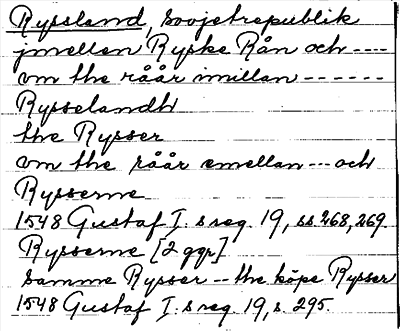 Ryssland, Sovjetrepublik
jmellan Ryske Rån och ----
om the råår imillan ------
Rysselandh
the Rysser
om the råår emellan --- och
Rysserne
1548 Gustaf I:s reg. 19, ss. 268, 269.
Rysserne [2 ggr]
samme Rysser -- the köpe Rysser
1548 Gustaf I:s reg. 19, s. 295.